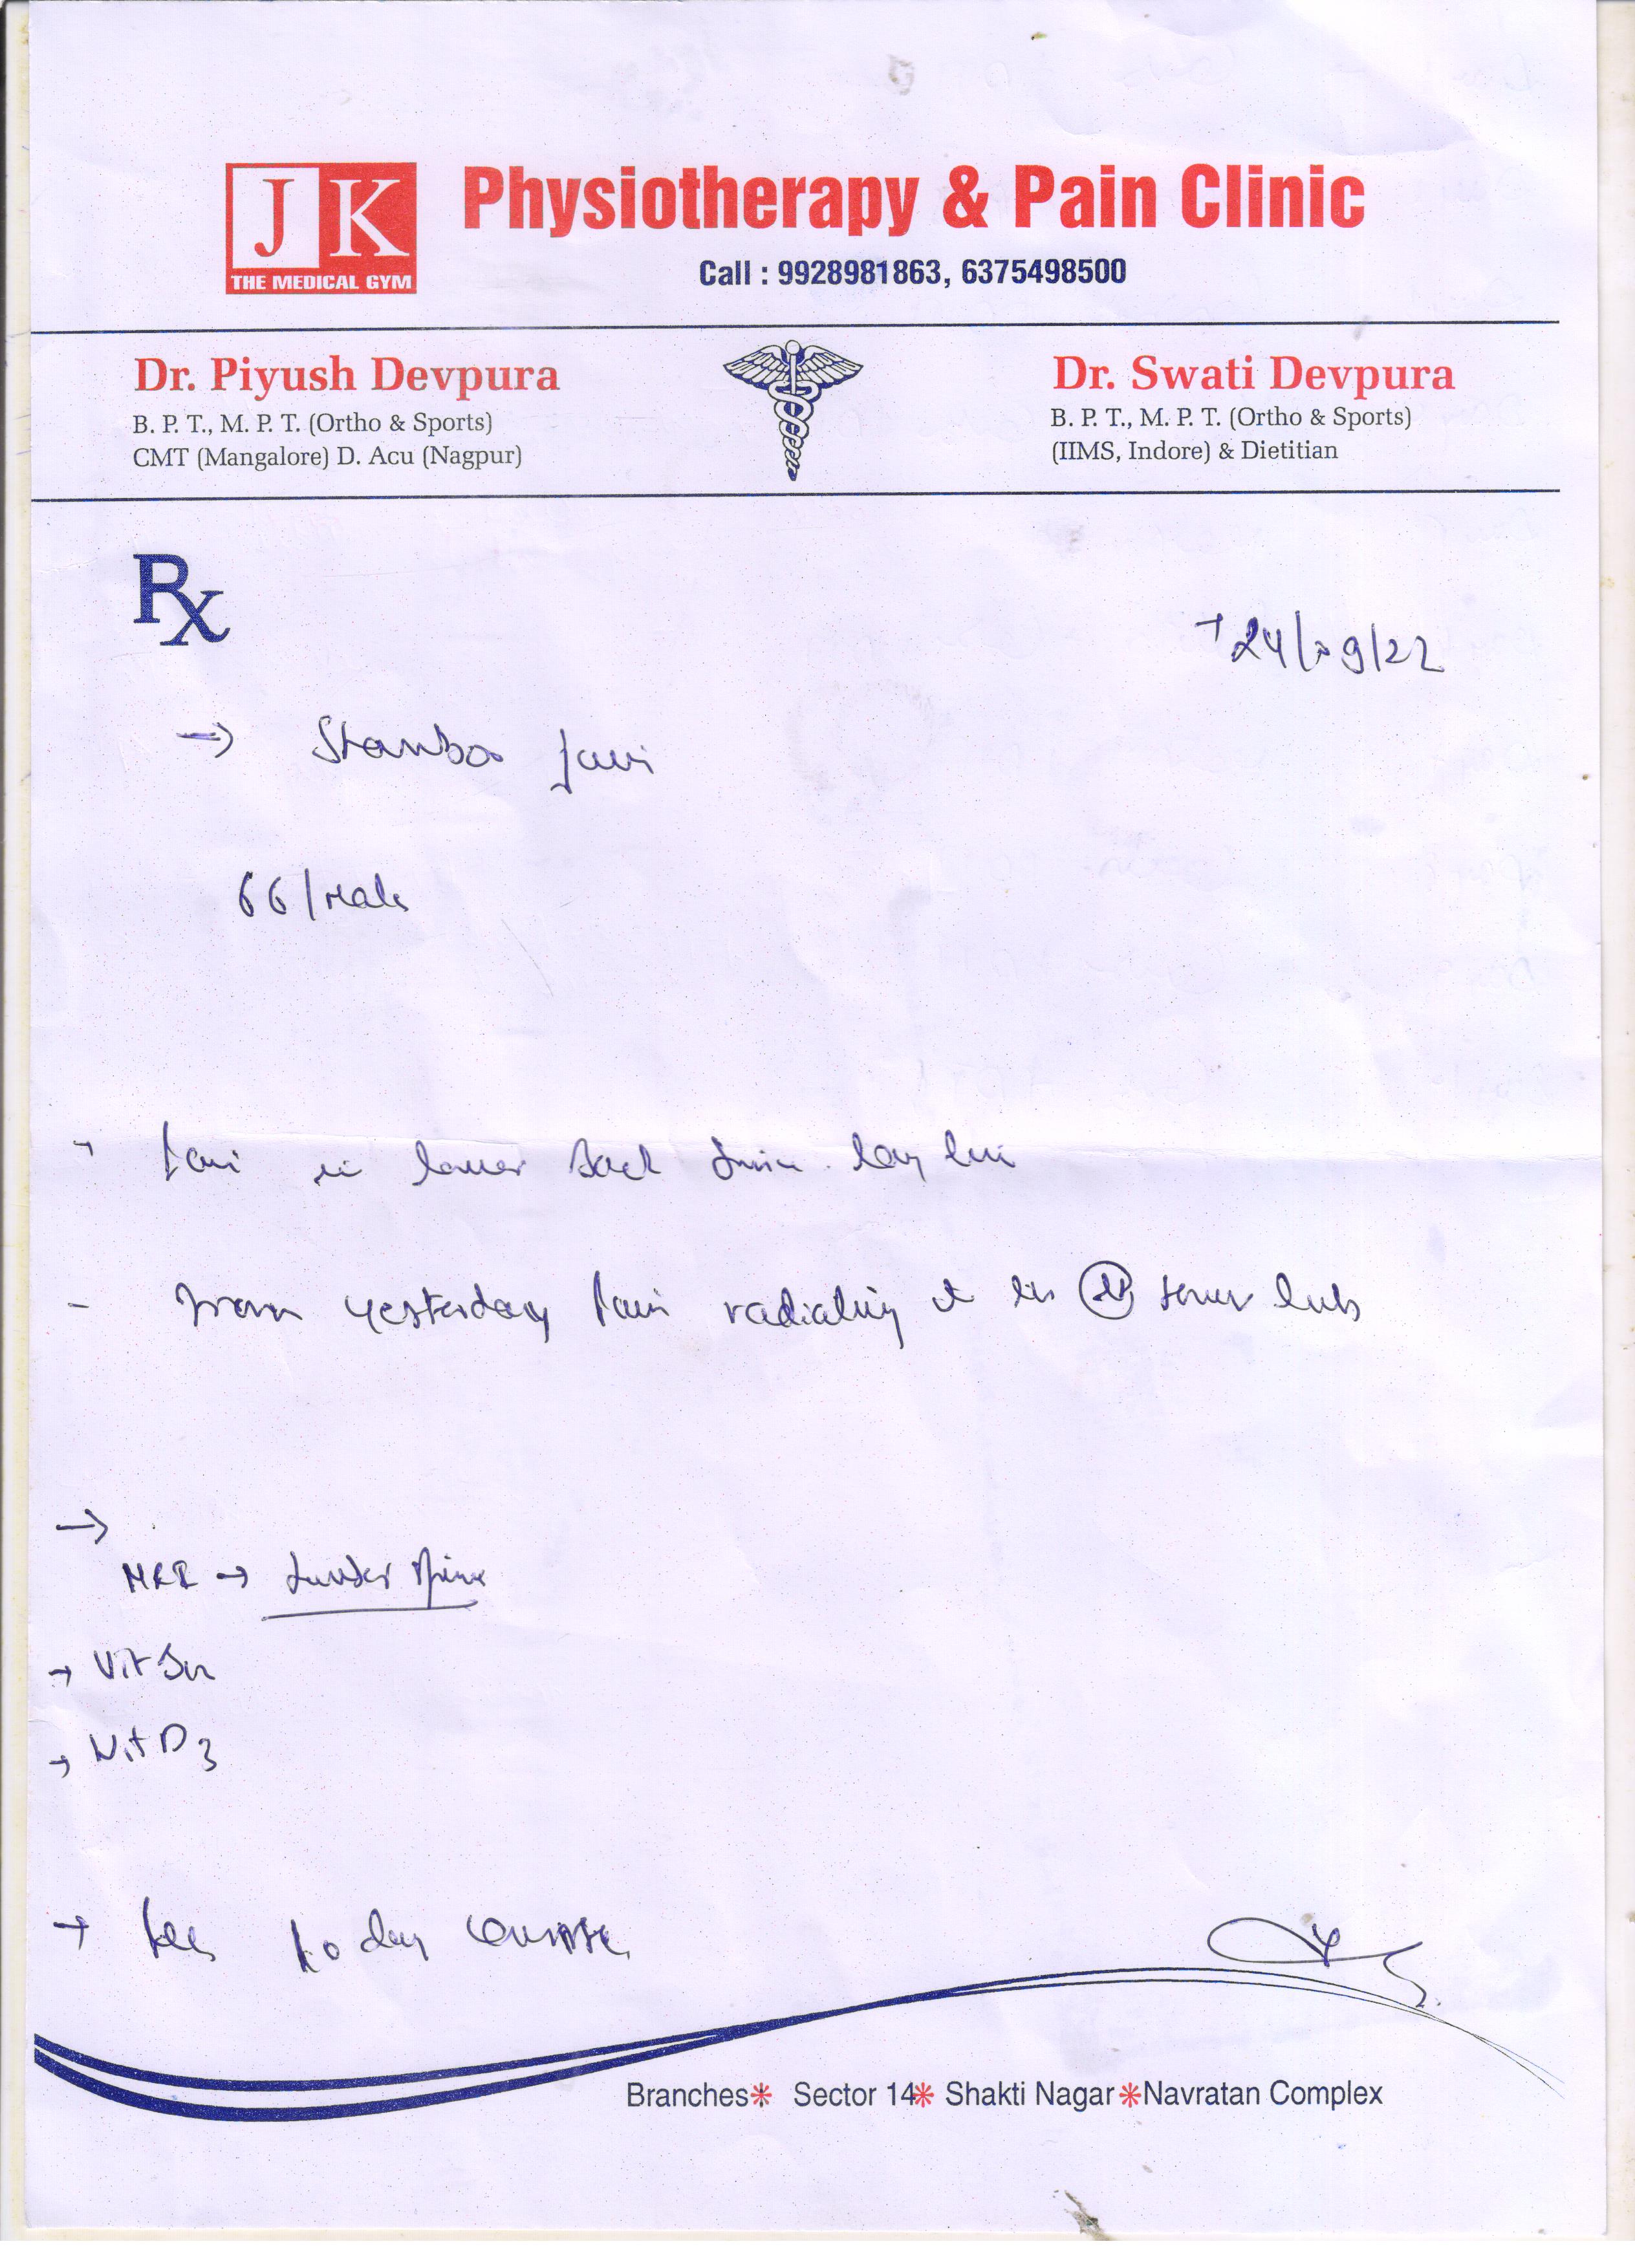 JK
THE MEDICAL GYM
Physiotherapy & Pain Clinic
Call : 9928981863, 6375498500
Dr. Piyush Devpura
B. P. T., M. P. T. (Ortho & Sports)
CMT (Mangalore) D. Acu (Nagpur)
Dr. Swati Devpura
B. P. T., M. P. T. (Ortho & Sports)
(IIMS, Indore) & Dietitian
Rx
24/09/22
→
66/Male
Pain in lower back since long
- From yesterday pain radiating lower limb
→
MRI → Lumbar Spine
→ Vit B12
→ Vit D3
→ 10 day course
Branches* Sector 14* Shakti Nagar *Navratan Complex